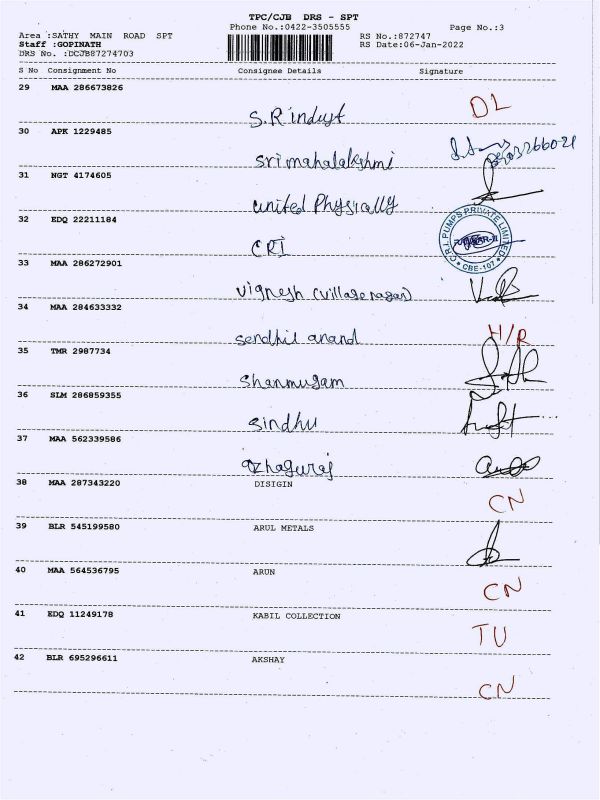 TPC/CJB DRS - SPT
Phone No.:0422-3505555 Page No.:3
Area :SATHY MAIN ROAD SPT RS No.:872747
Staff :GOPINATH RS Date:06-Jan-2022
DRS No. :DCJB87274703
S No Consignment No Consignee Details Signature
29 MAA 286673826
S.R indust DL
30 APK 1229485
sri mahalakshmi
31 NGT 4174605
united Physically
32 EDQ 22211184
C.R.I. PUMPS PRIVATE LIMITED
CBE-107
CRI
33 MAA 286272901
vignesh (village nagar)
34 MAA 284633332
sendhil anand H/R
35 TMR 2987734
shanmugam
36 SLM 286859355
sindhu
37 MAA 562339586
azhaguraj
38 MAA 287343220 DISIGIN
CN
39 BLR 545199580 ARUL METALS
40 MAA 564536795 ARUN
CN
41 EDQ 11249178 KABIL COLLECTION
TU
42 BLR 695296611 AKSHAY
CN